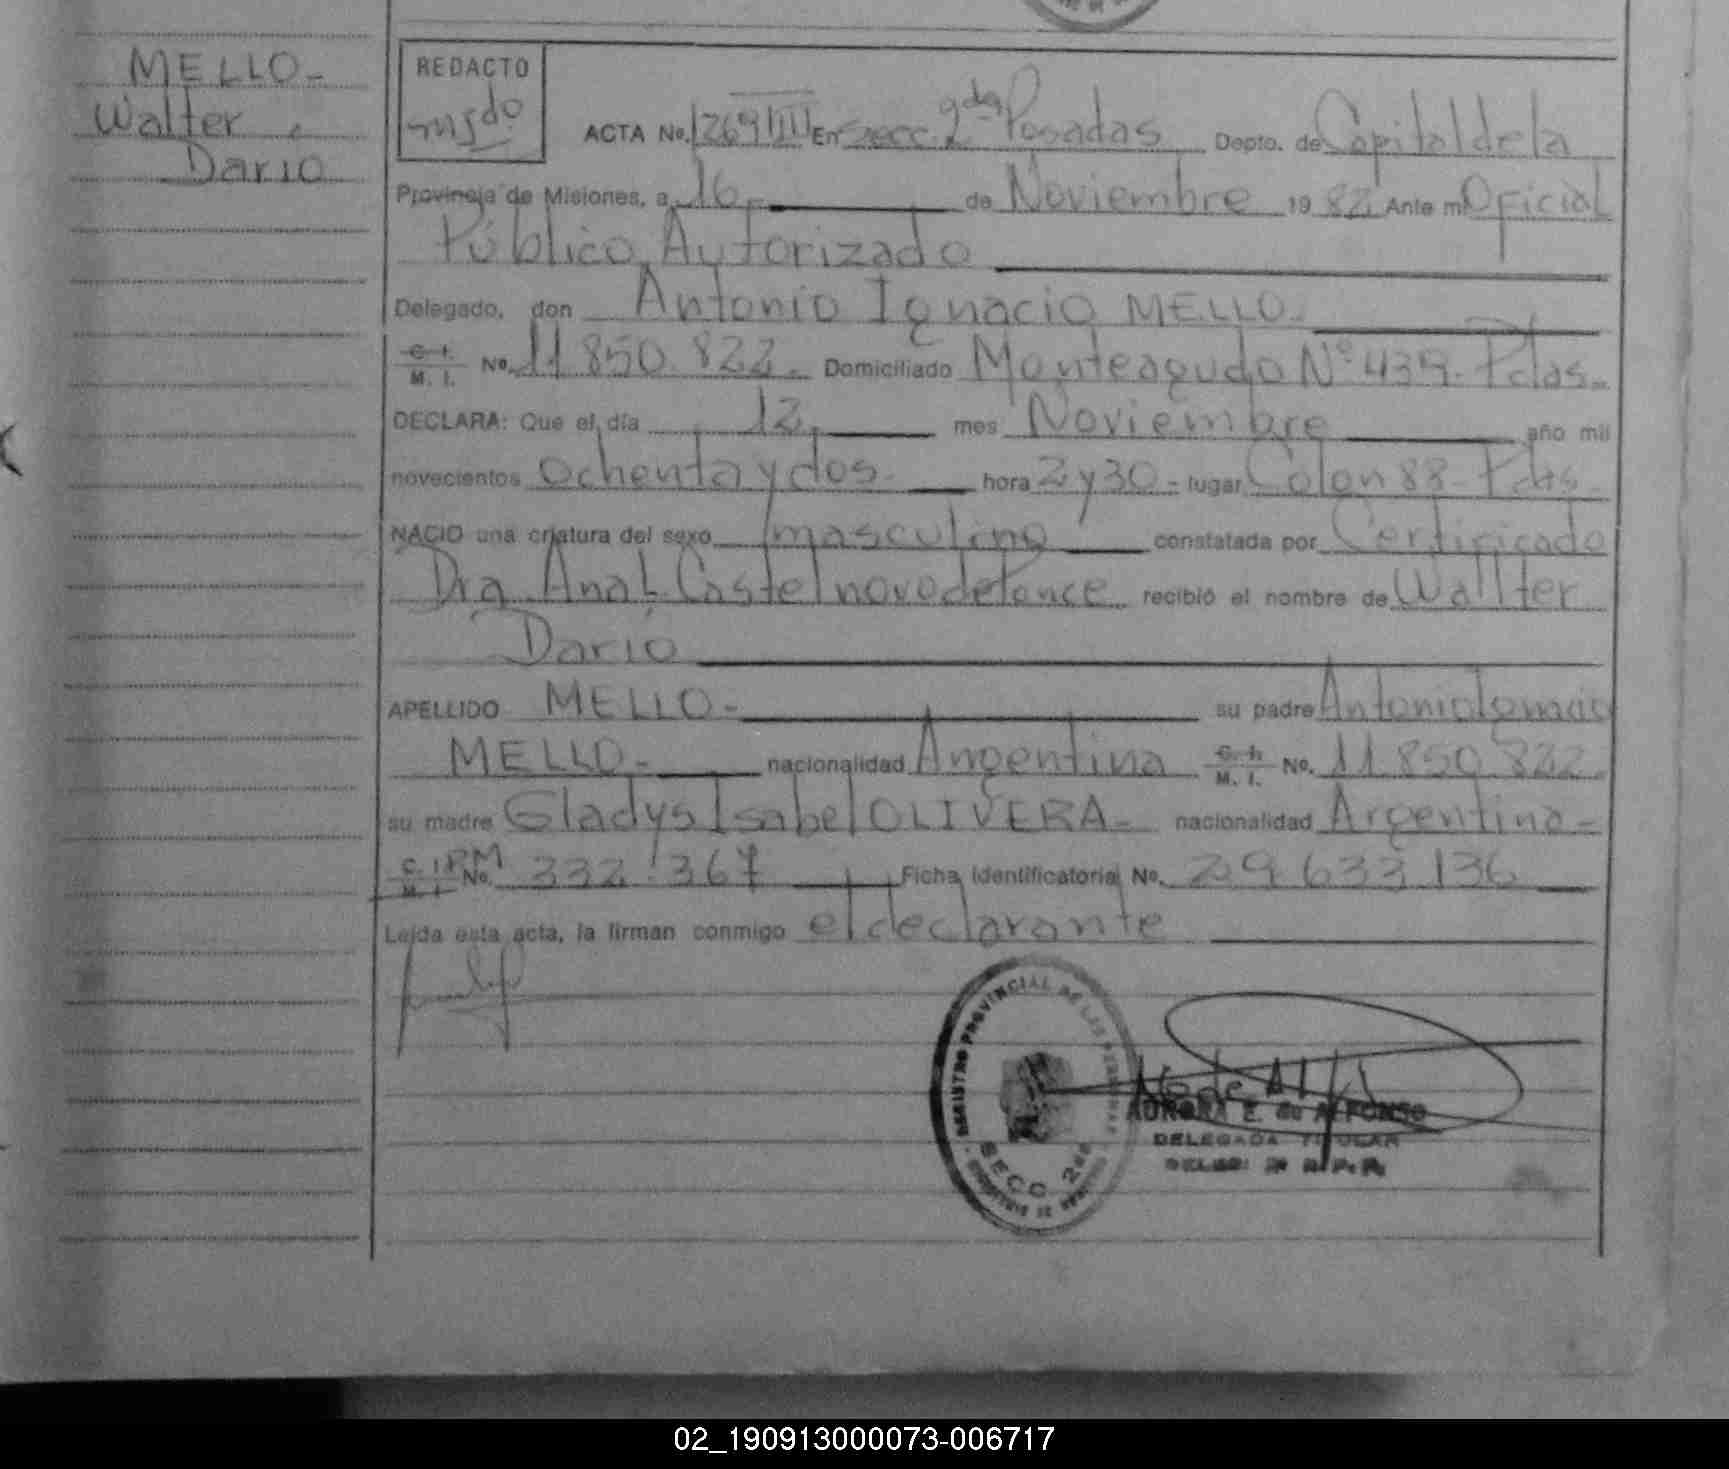 MELLO-
Walter
Dario
REDACTO
ACTA No. 1269 III En Secc. 2da Posadas Depto. de Capital de la
Provincia de Misiones, a 16 de Noviembre 19 82 Ante mi Oficial
Público Autorizado
Delegado, don Antonio Ignacio MELLO-
C. I.
M. I. No. 11.850.822. Domiciliado Monteagudo Nº 439. Pdas.
DECLARA: Que el día 12 mes Noviembre año mil
novecientos ochenta y dos. hora 2 y 30 - lugar Colon 88 - Pdas.
NACIO una criatura del sexo masculino constatada por Certificado
Dra Ana L. Castelnovo de Ponce recibió el nombre de Wallter
Dario
APELLIDO MELLO- su padre Antonio Ignacio
MELLO- nacionalidad Argentina C. I. M. I. No. 11.850.822.
su madre Gladys Isabel OLIVERA- nacionalidad Argentina-
C. I. PM M. I. No. 332.367 Ficha Identificatoria No. 29.633.136
Leída esta acta, la firman conmigo el declarante
REGISTRO PROVINCIAL DE LAS PERSONAS
SECC. 2da
AURORA E. de ALFONSO
DELEGADA TITULAR
02_190913000073-006717